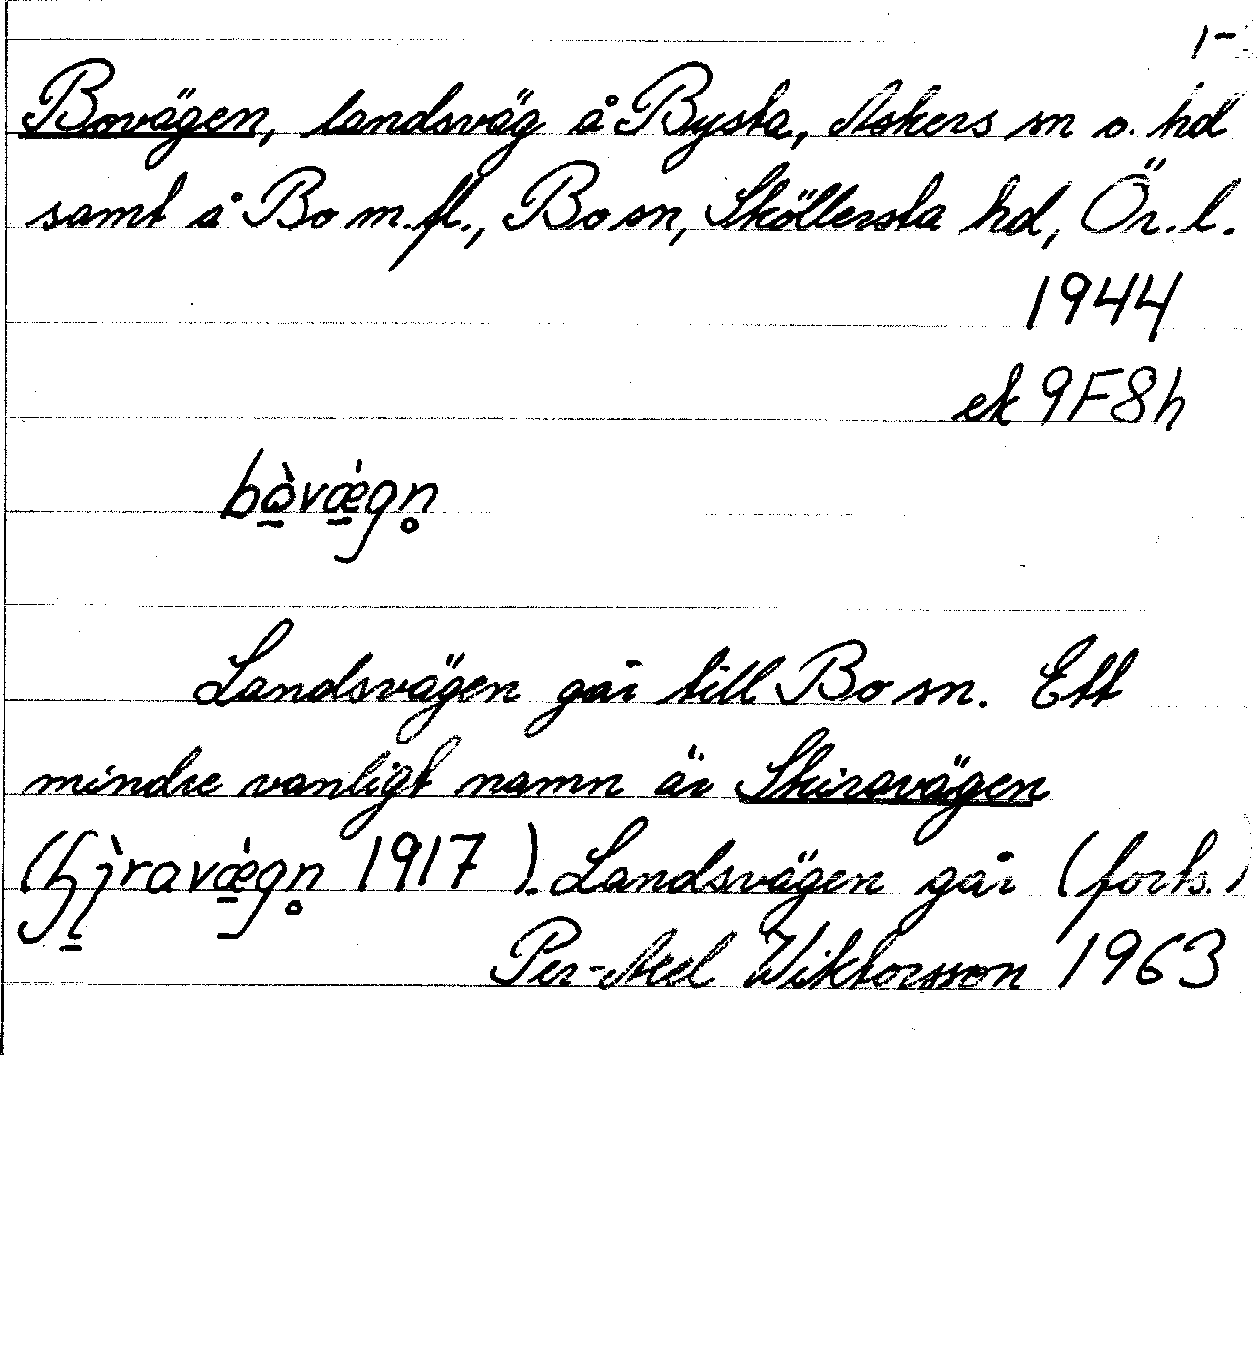 1-
Bovägen, landsväg å Bysta, Askers sn o. hd
samt å Bo m.fl., Bo sn, Sköllersta hd, Ör. l.
1944
ek 9F8h
bò̱vǽ̱gn̥
Landsvägen går till Bo sn. Ett
mindre vanligt namn är Skiravägen
1917). Landsvägen går (forts.)
Per-Axel Wiktorsson 1963